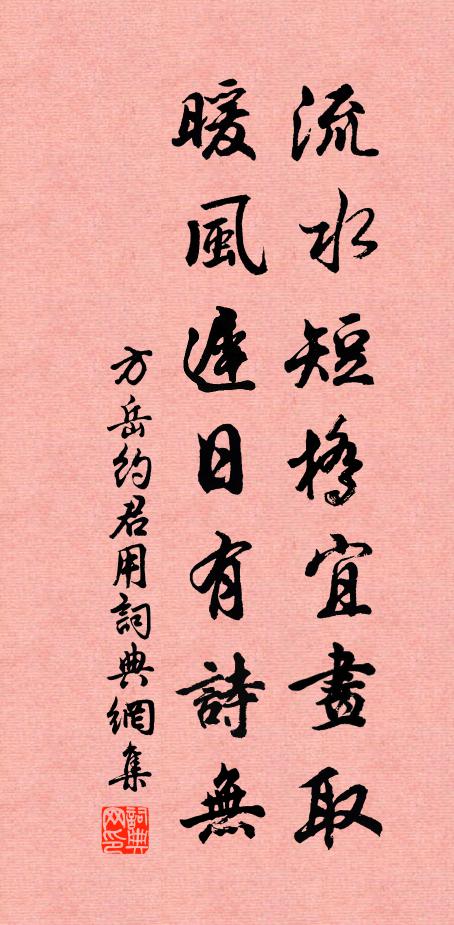 流水短橋宜畫取
暖風遲日有詩無
方岳約君用詞典網集
詞典網印